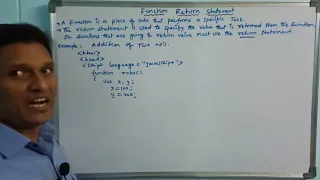 Function Return Statement
→ A Function is a piece of code that performs a specific Task.
→ The return statement is used to specify the value that is returned from the function
So functions that are going to return value must use the return statement.
Example: Addition of Two no's.
<html>
<head>
<script language = "javascript">
function
{ var x, y;
x=100;
y=200;